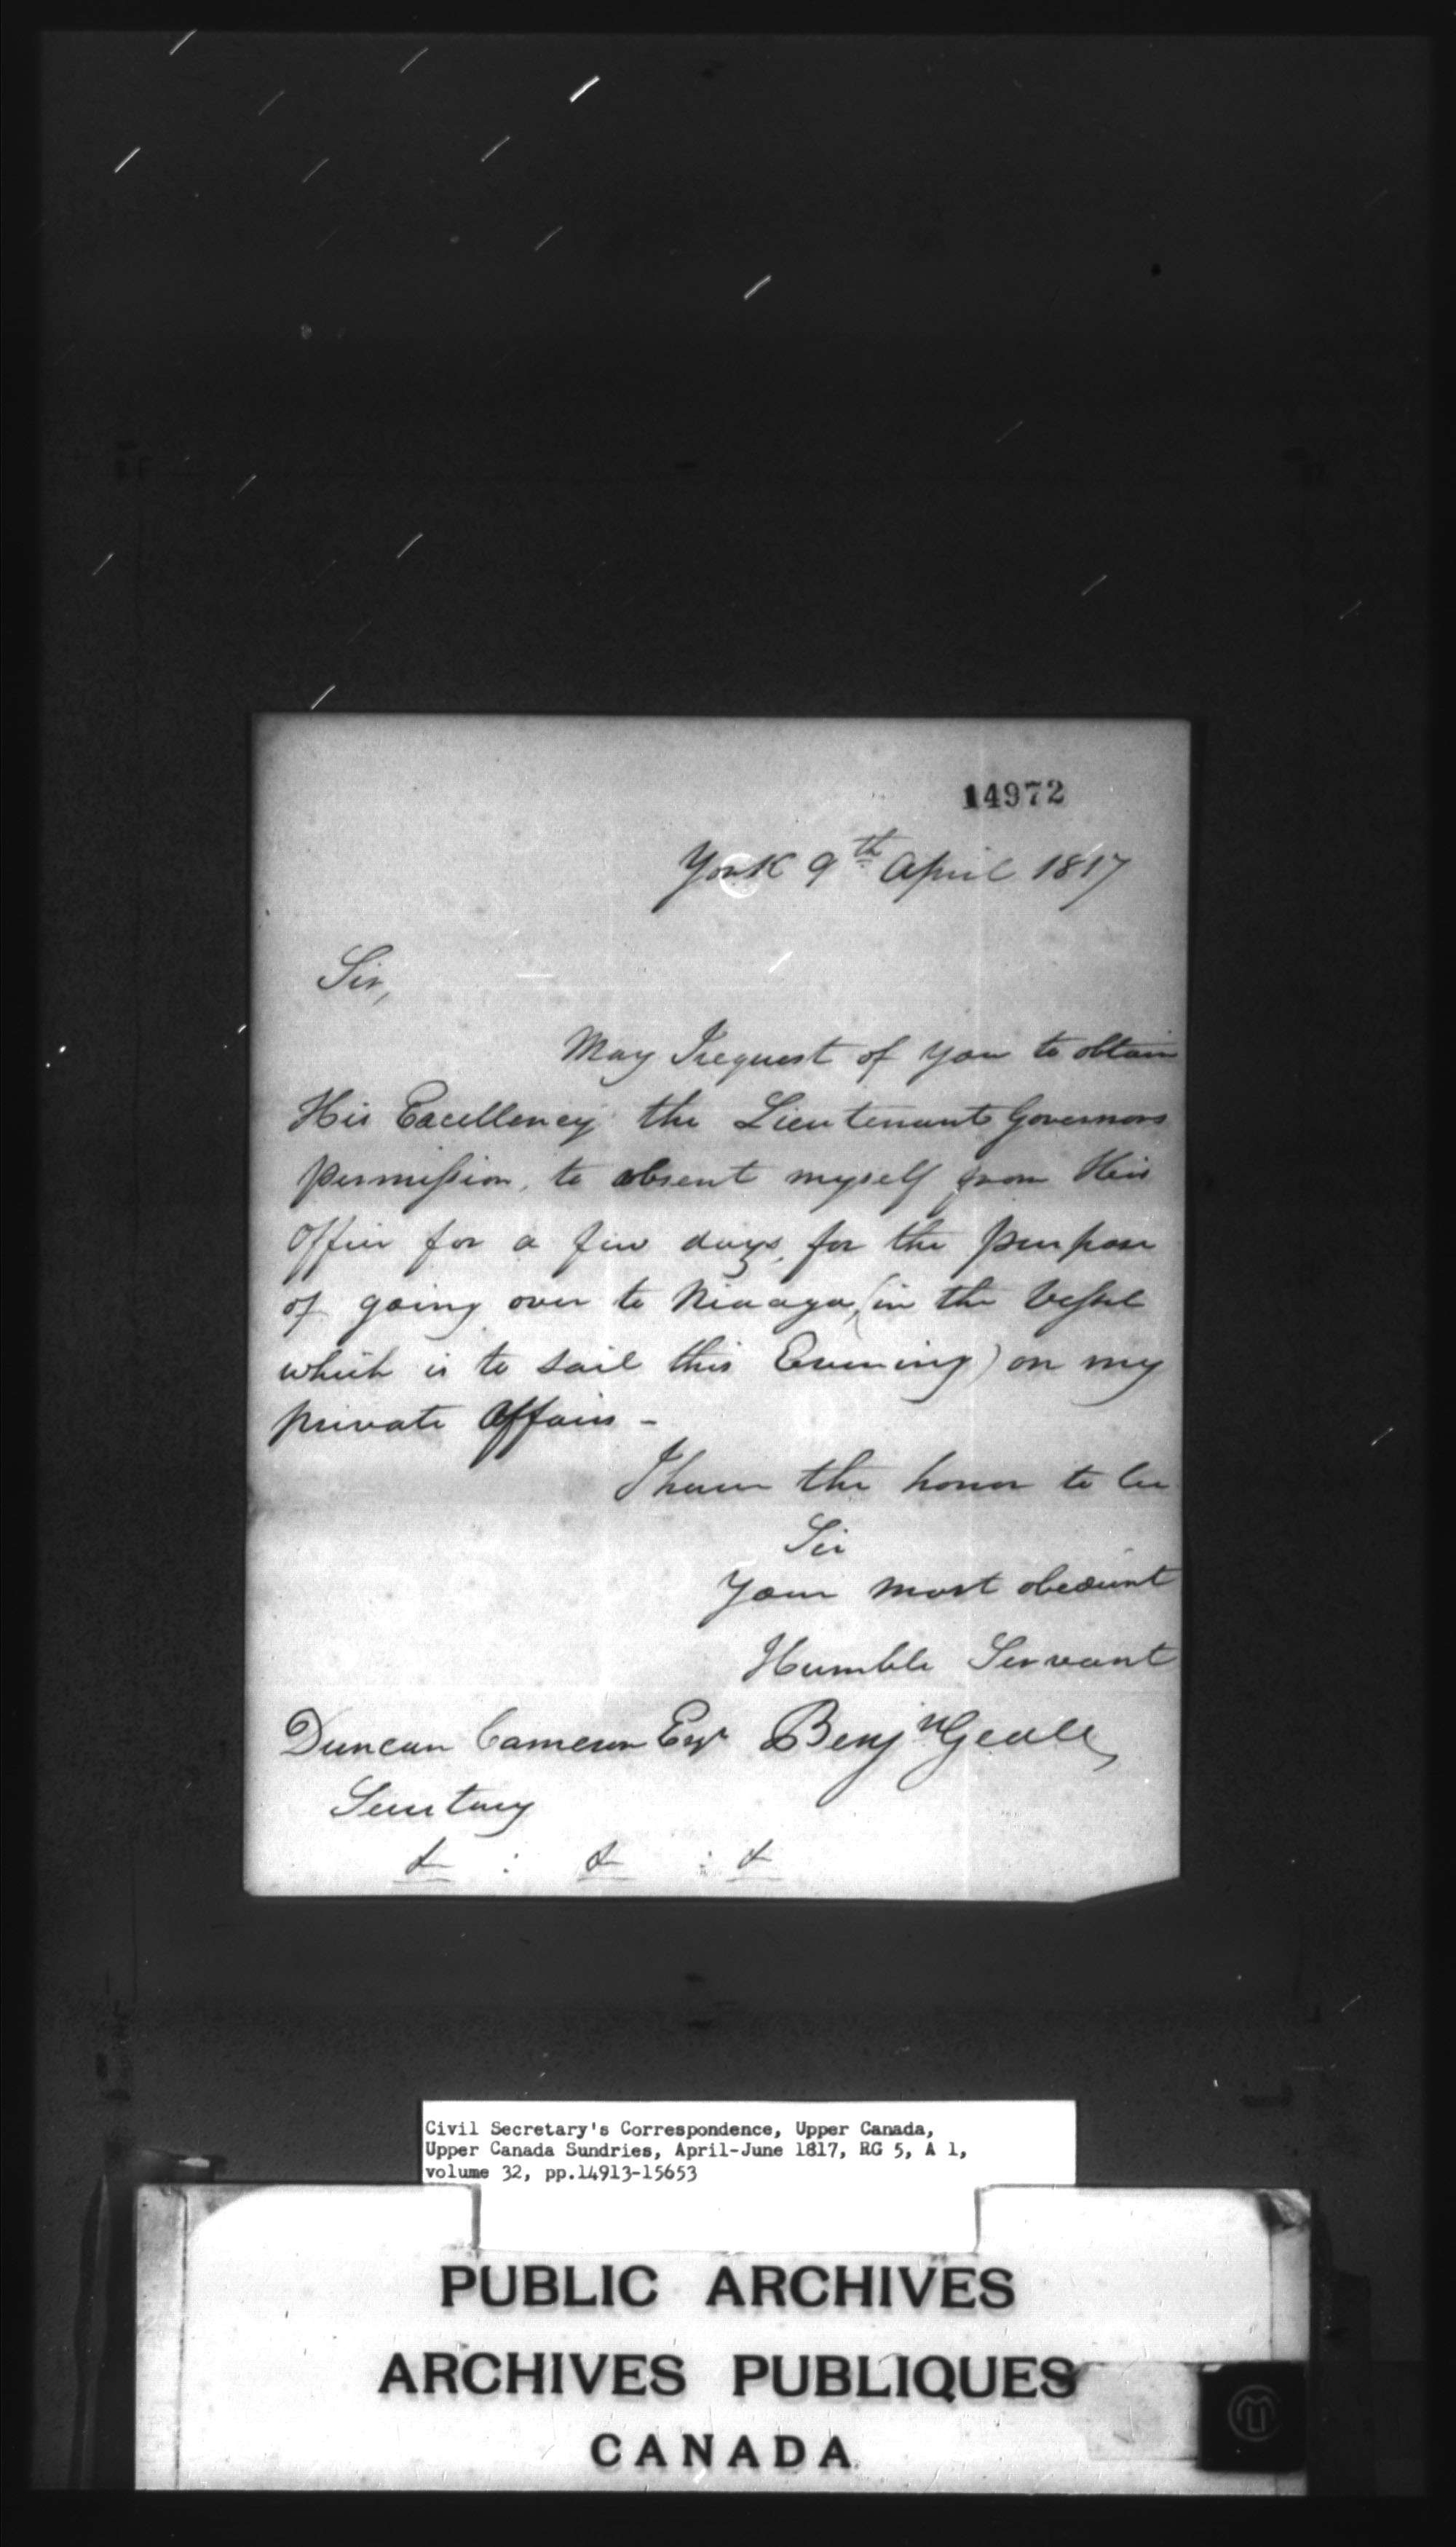 14972
York 9th April 1817
Sir,
May I request of you to obtain
His Excellency the Lieutenant Governors
permission, to absent myself from His
Office for a few days, for the purpose
of going over to Niaaga, (in the Vessel
which is to sail this Evening) on my
private Affairs -
I have the honor to be
Sir
Your most obedient
Humble Servant
Duncan Cameron Esqr Benjn Geale
Secretary
& : & : &
Civil Secretary's Correspondence, Upper Canada,
Upper Canada Sundries, April-June 1817, RG 5, A 1,
volume 32, pp.14913-15653
PUBLIC ARCHIVES
ARCHIVES PUBLIQUES
CANADA